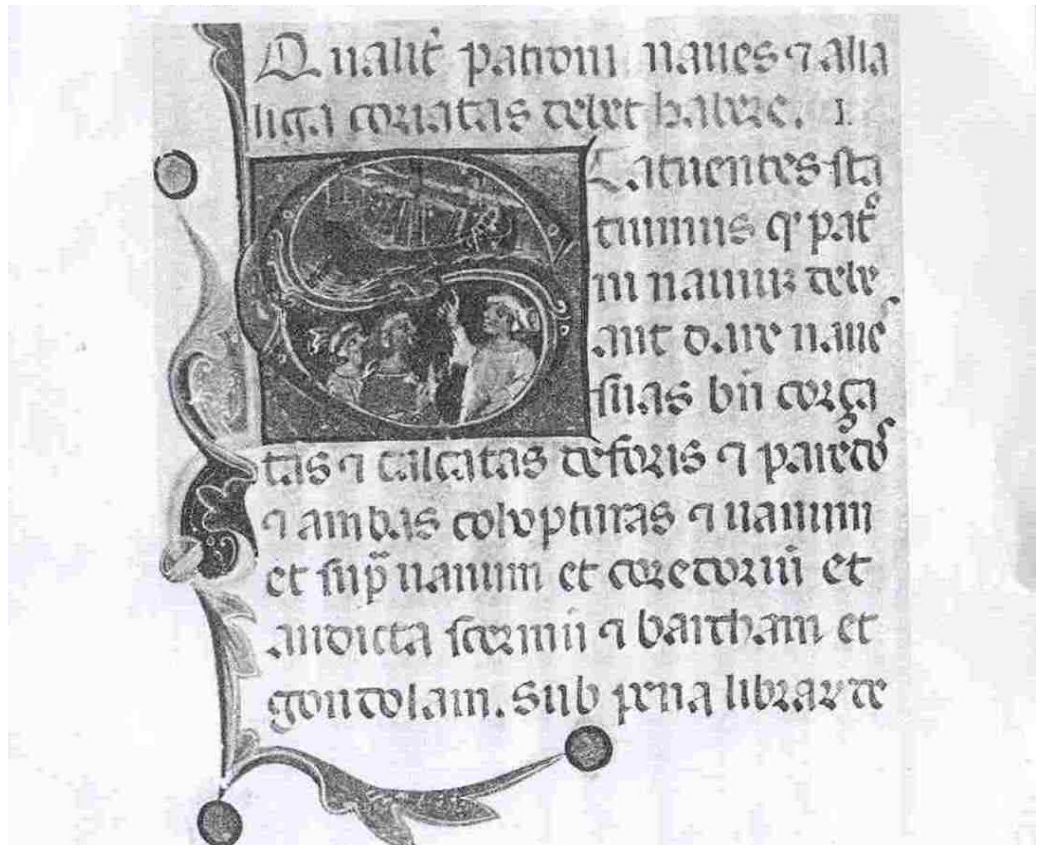 Qualit̉ patroni naues ⁊ alia
liga coriatas debet habere. I.
Statuentes sta
tuimus qͥ pat̉
ni nauiuʒ debe
ant dare naues
suas bn̄ corga
tas ⁊ calcatas deforis ⁊
⁊ ambas colupturas ⁊ uanum
et sup̃uanum et coretoriū et
et
gondolam. Sub pena librar̄ de